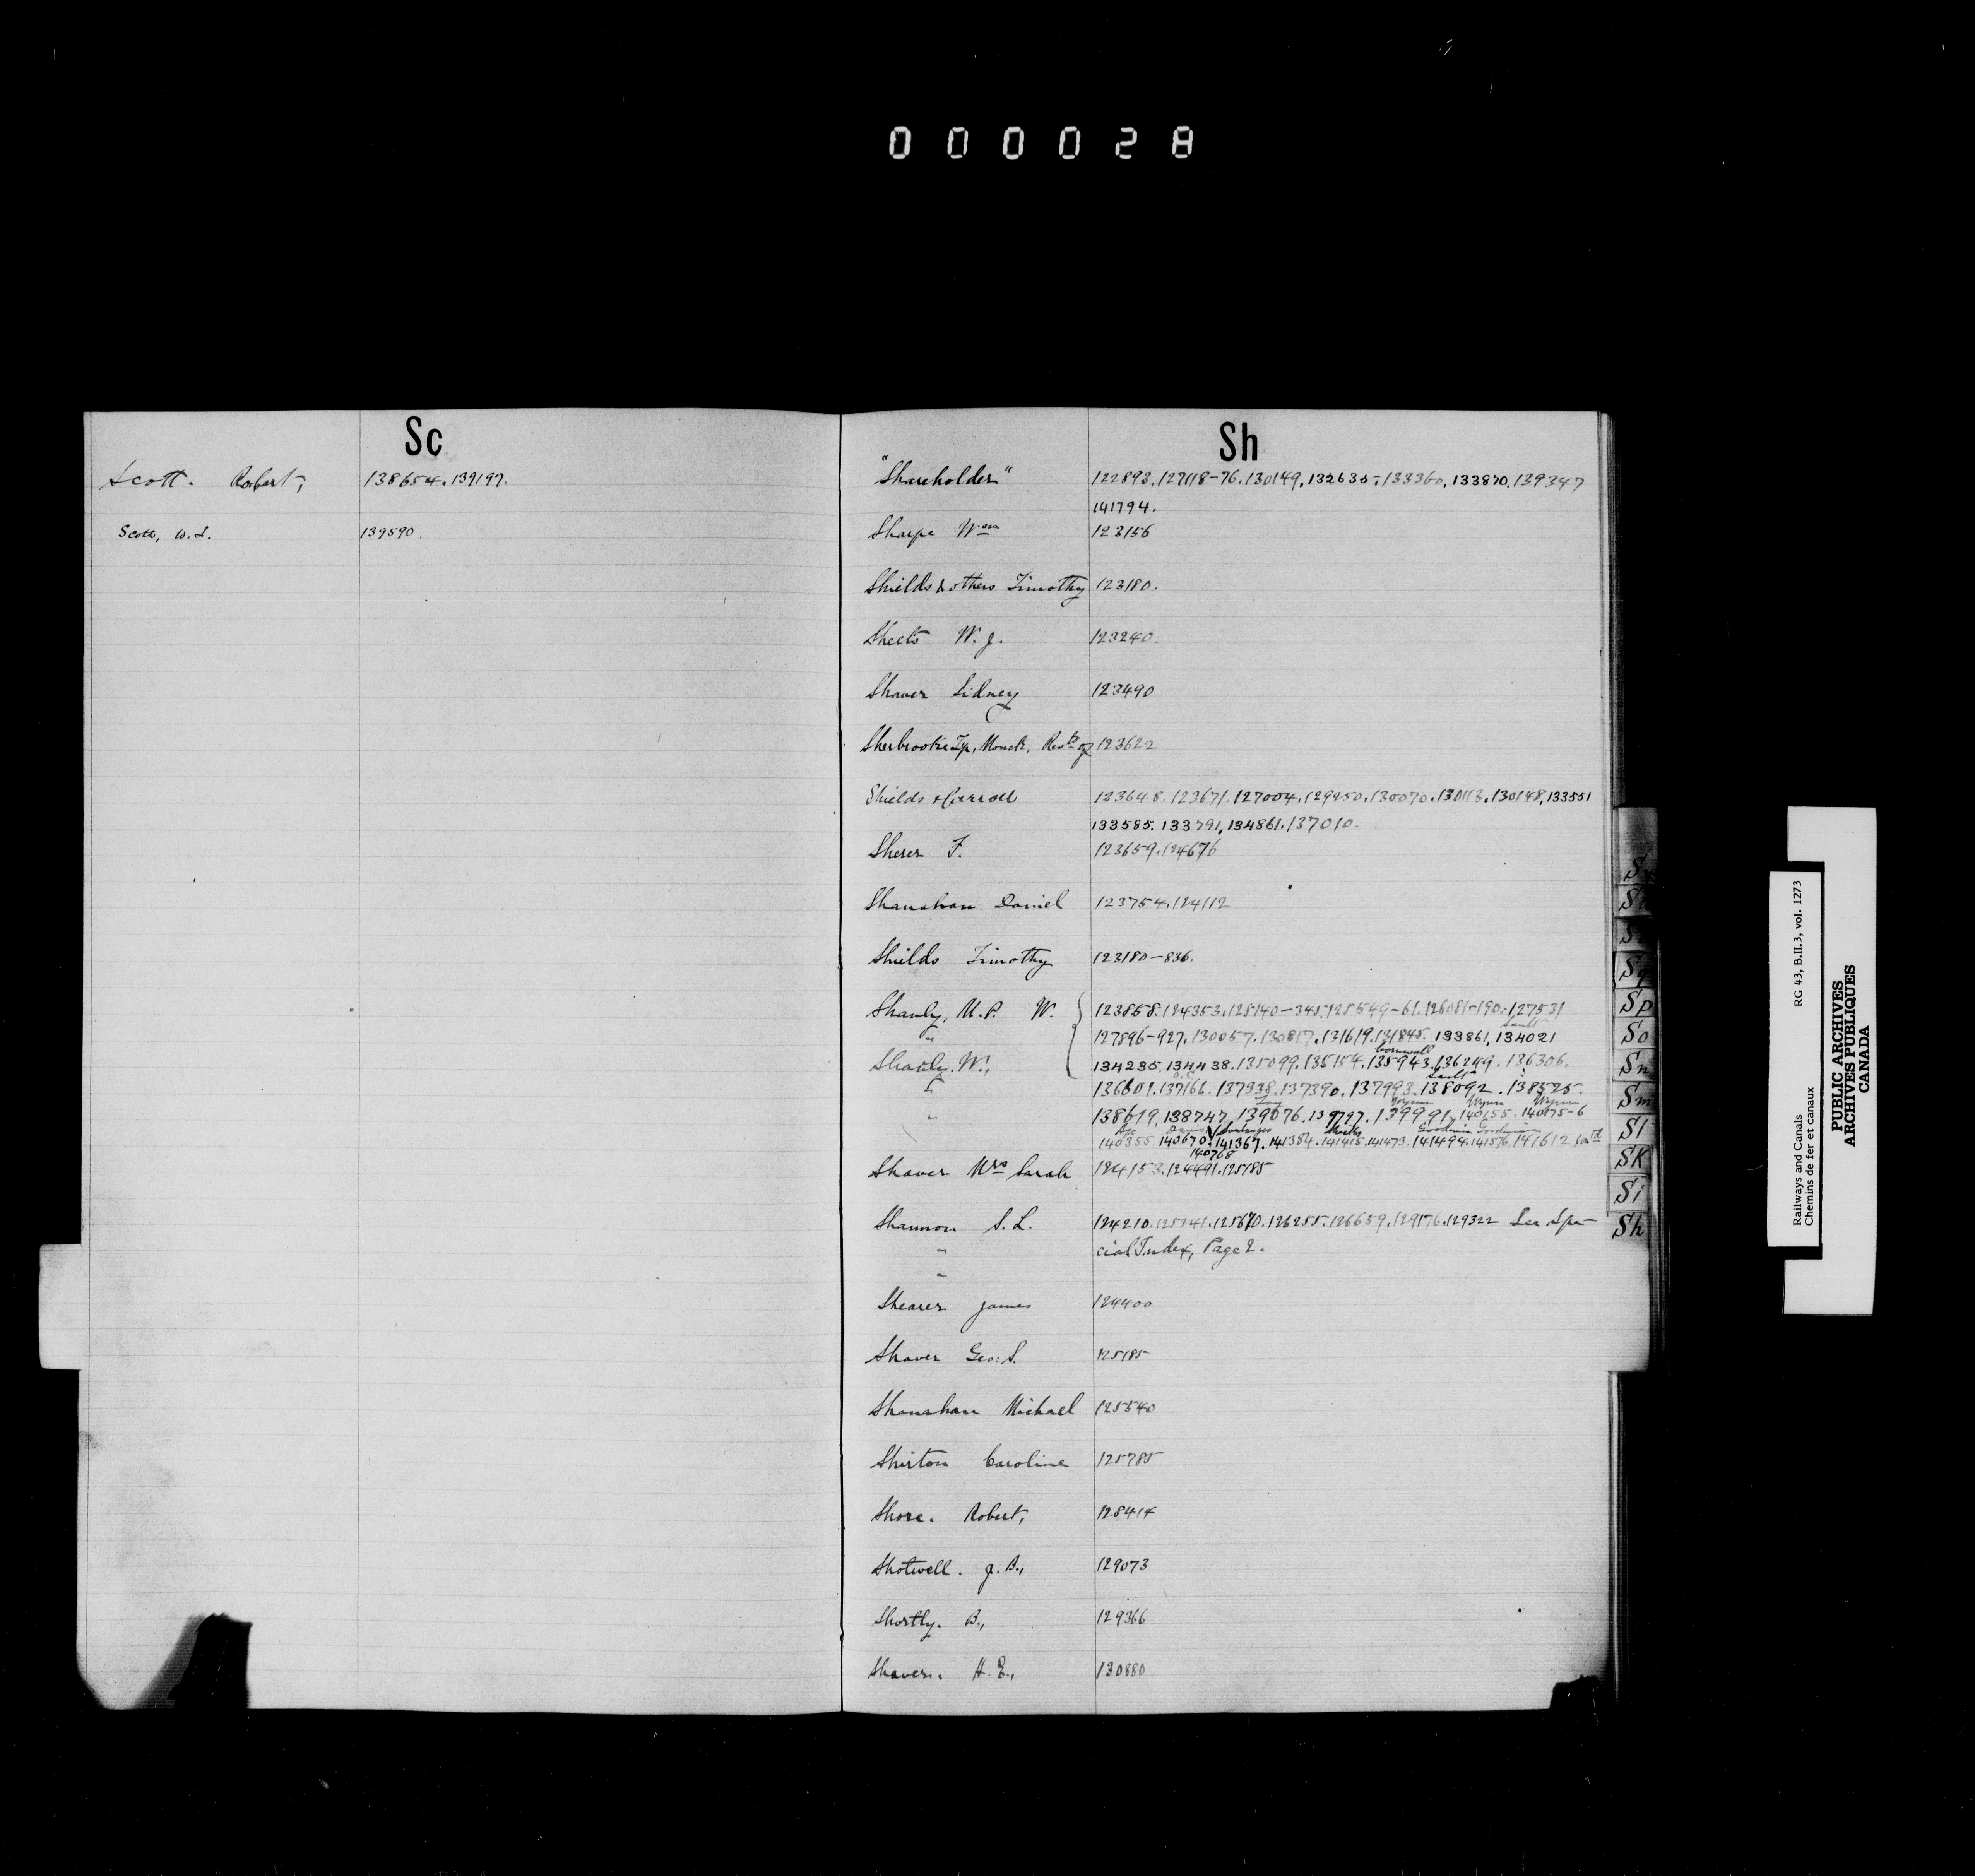 000028
Sc
Scott. Robert, 138654. 139197.
Scott, W. L. 139590.
Sh
"Shareholder" 122893. 127118-76. 130149, 132635, 133360, 133870. 139347
141794.
Sharpe Wm 123156
Shields & others Timothy 123180.
Sheets W. J. 123240.
Shaver Sidney 123490
Sherbrooke Tp, Monck, Resdts of 123622
Shields & Carroll 123648. 123671. 127004. 129250. 130070. 130113. 130148, 133551
133585. 133791, 134861. 137010.
Sherer F. 123659. 124676
Shanahan Daniel 123754. 124112
Shields Timothy 123180-836.
Shanly, M.P. W. 123858. 124353. 125140-345. 125549-61. 126081-190. 127531
Sault
" 127896-927. 130057. 130817. 131619. 131845. 133861, 134021
Cornwall
Shanly. W., 134235. 134438. 135099. 135154. 135943. 136249. 136306.
Sault
136601. 137166. 137338. 137390. 137993. 138092. 138525.
Wynn Wynn
" 138619. 138747. 139676. 139797. 139991. 140155. 140175-6
Davis Soulanges Goodwin Goodwin
140355. 140670. 141367. 141384. 141415. 141473. 141494. 141576. 141612
140768
Shaver Mrs Sarah 124153. 124491. 125185
Shannon S. L. 124210. 125241. 125670. 126255. 126659. 129176. 129322 See Spe-
" cial Index, Page 2.
"
Shearer James 124400
Shaver Geo: S. 125185
Shanahan Michael 125540
Shirton Caroline 125785
Shore. Robert, 128414
Shotwell. J. B., 129073
Shortly. B., 129366
Shaver. H. E., 130880
Sq
Sp
So
Sn
Sm
Sl
SK
Si
Sh
Railways and Canals RG 43, B.II.3, vol. 1273
Chemins de fer et canaux
PUBLIC ARCHIVES
ARCHIVES PUBLIQUES
CANADA